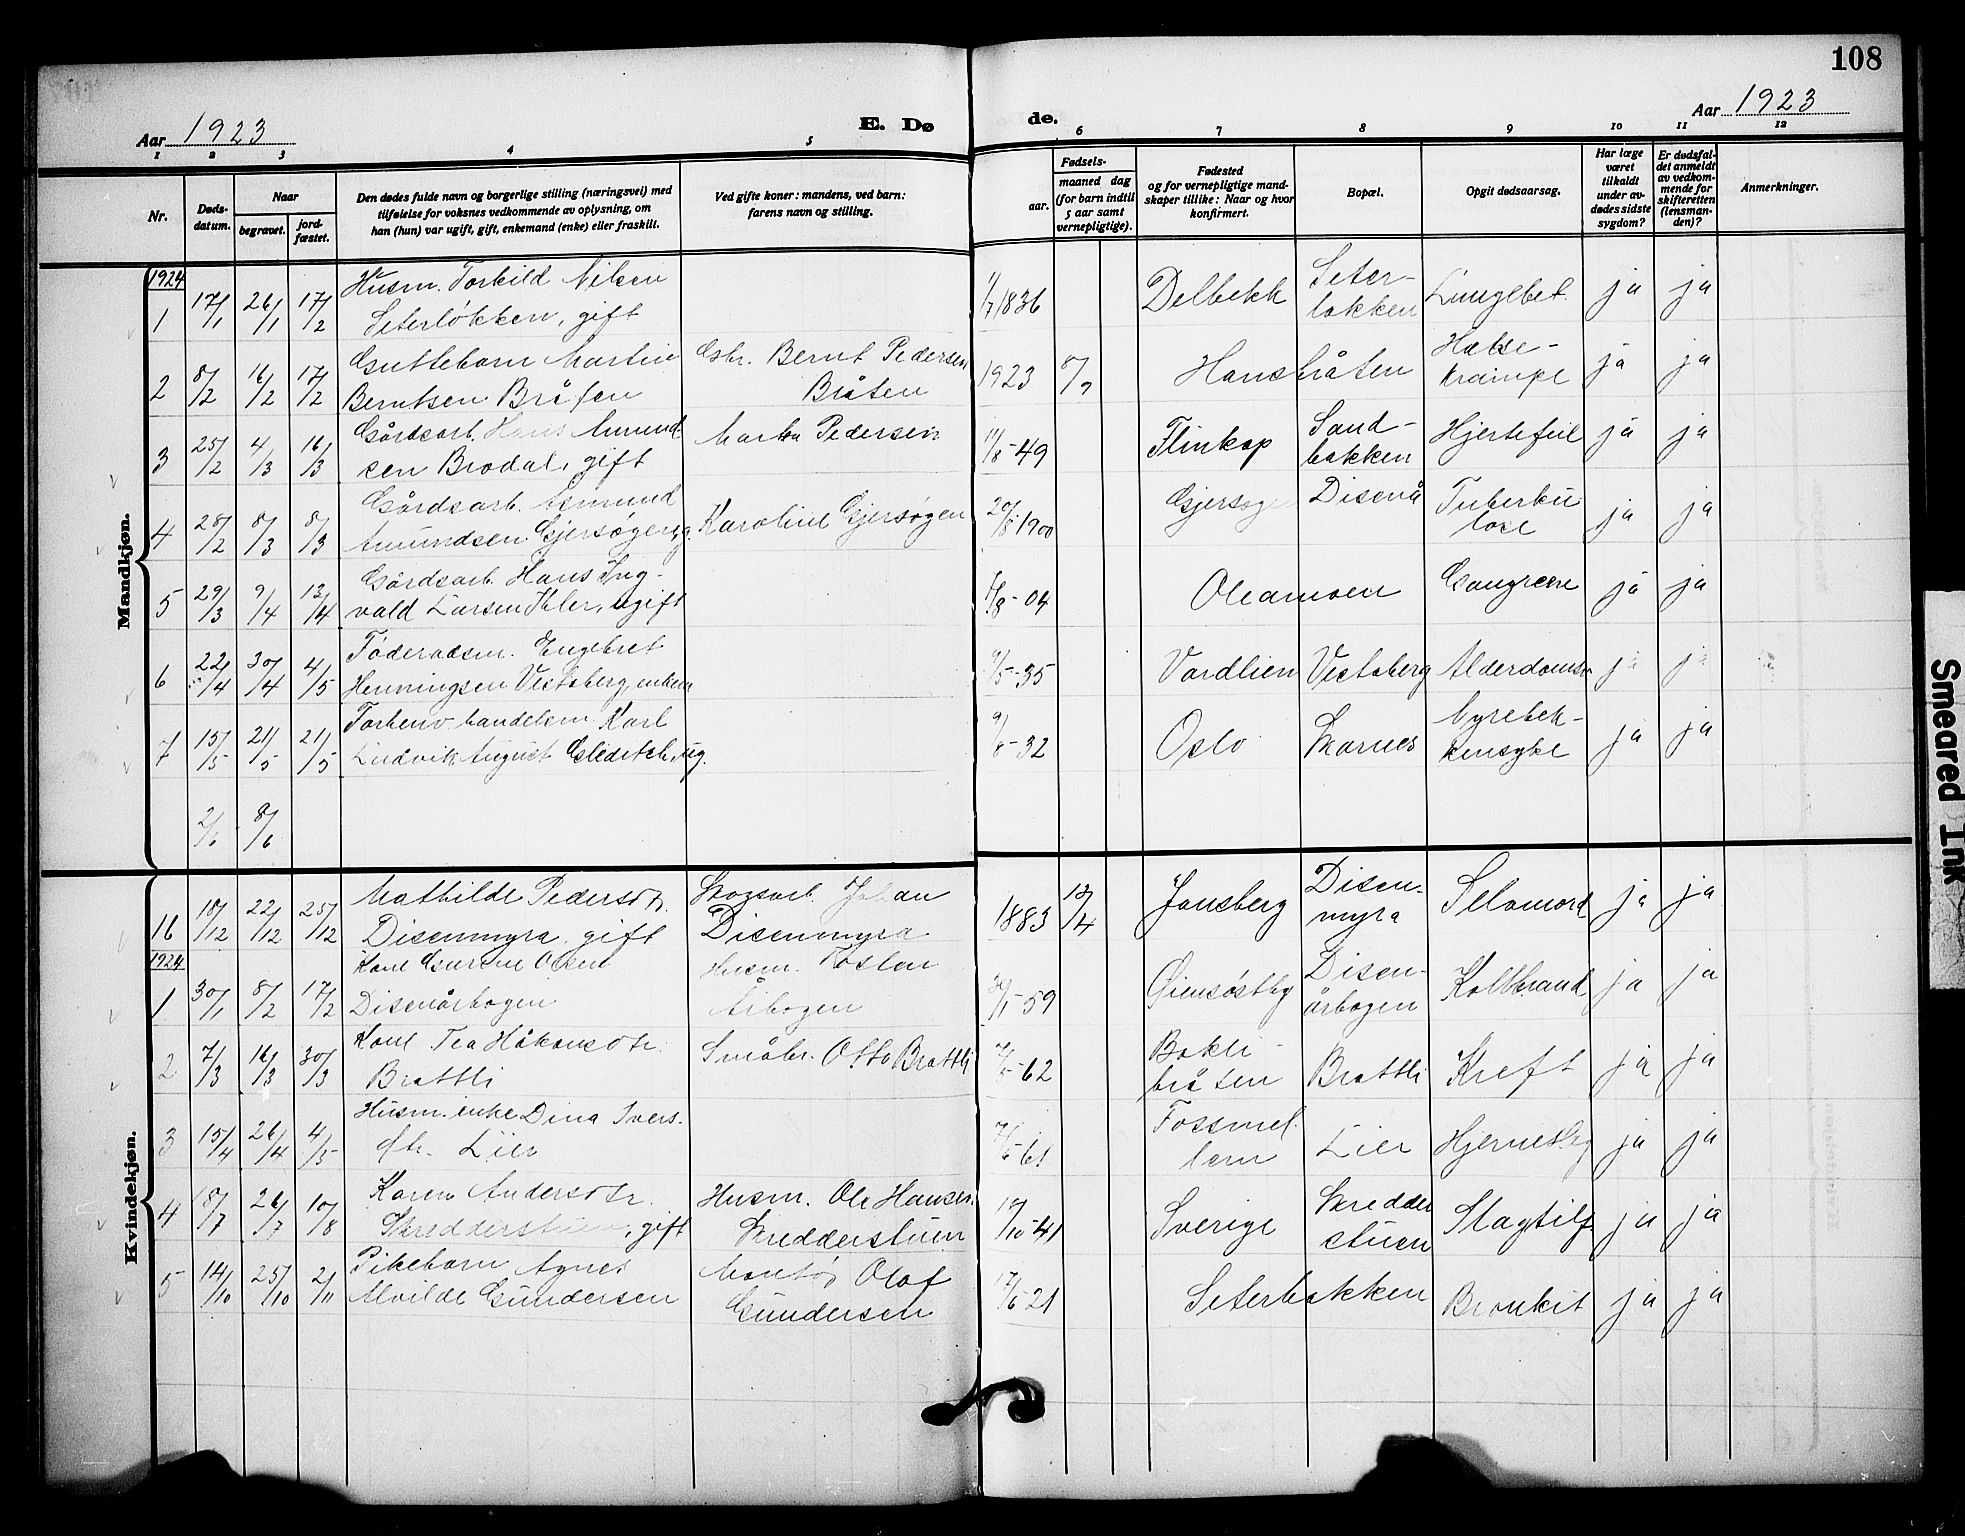 108
Aar 1923
E. Dø
de.
Aar 1923
1 2 3 4 5 6 7 8 9 10 11 12
Nr.
Døds-
datum.
Naar
begravet.
jord-
fæstet.
Den dødes fulde navn og borgerlige stilling (næringsvei) med
tilføielse for voksnes vedkommende av oplysning, om
han (hun) var ugift, gift, enkemand (enke) eller fraskilt.
Ved gifte koner: mandens, ved barn:
farens navn og stilling.
Fødsels-
aar.
maaned dag
(for barn indtil
5 aar samt
vernepligtige).
Fødested
og for vernepligtige mand-
skaper tillike: Naar og hvor
konfirmert.
Bopæl.
Opgit dødsaarsag.
Har læge
været
tilkaldt
under av-
dødes sidste
sygdom?
Er dødsfal-
det anmeldt
av vedkom-
mende for
skifteretten
(lensman-
den)?
Anmerkninger.
Mandkjøn.
1924
1 17/1 26/1 17/2 Husm. Torkild Nilsen
Seterløkken, gift
1/7 1836 Delbekk Seter-
løkken Lungebet. ja ja
2 8/2 16/2 17/2 Guttebarn Martin
Berntsen Bråten
Gbr. Bernt Pedersen
Bråten
1923 Hansbråten Halse-
krampe ja ja
3 25/2 4/3 16/3 Gårdsarb. Hans Amund-
sen Brodal, gift
Marta Pedersen
11/8-49 Flinkop Sand-
bakken Hjertefeil ja ja
4 28/2 8/3 8/3 Gårdsarb. Asmund
Amundsen Gjersøgen, g.
Karoline Gjersøgen
20/8 1900 Gjersøg Disenå Tuberku-
lose ja ja
5 29/3 9/4 13/4 Gårdsarb. Hans Ing-
vald Larsen Ihler, ugift
-04 Oleamoen Gangrene ja ja
6 22/4 30/4 4/5 Føderådsm. Engebret
Henningsen Vestaberg, enkem
9/5-35 Vardlien Vestaberg Alderdomss. ja ja
7 15/5 21/5 21/5 Forhenv. handelsm. Karl
Ludvik August Gleditch, ug.
9/8-32 Oslo Skarnes Nyrebek-
kensyke ja ja
2/6 8/6
Kvindekjøn.
16 18/12 22/12 25/12 Mathilde Pedersdtr.
Disenmyra, gift
Skogsarb. Johan
Disenmyra
1883 13/4 Jonsberg Disen-
myra Selvmord ja ja
1924
1 30/1 8/2 17/2 Kone Gurine Olsen
Disenårbogen
Husm. Tosten
Årbogen
30/1-59 Øiensøstby Disen-
årbogen Koldbrand ja ja
2 7/3 16/3 30/3 Kone Tea Håkonsdtr.
Brattli
Småbr. Otto Brattli
7/8-62 Bakli-
bråten Brattli Kreft ja ja
3 15/4 26/4 4/5 Husm. enke Dina Ivers-
dtr. Lier
7/6-61 Fossmel-
lem Lier Hjerneslag ja ja
4 8/7 26/7 10/8 Karen Andersdtr.
Skredderstuen, gift
Husm. Ole Hansen
Skredderstuen
19/10-41 Sverige Skredder
stuen Slagtilf ja ja
5 14/10 25/10 2/11 Pikebarn Agnes
Alvilde Gundersen
Montør Olaf
Gundersen
17/6 21 Seterbakken Bronkit ja ja
Smeared Ink